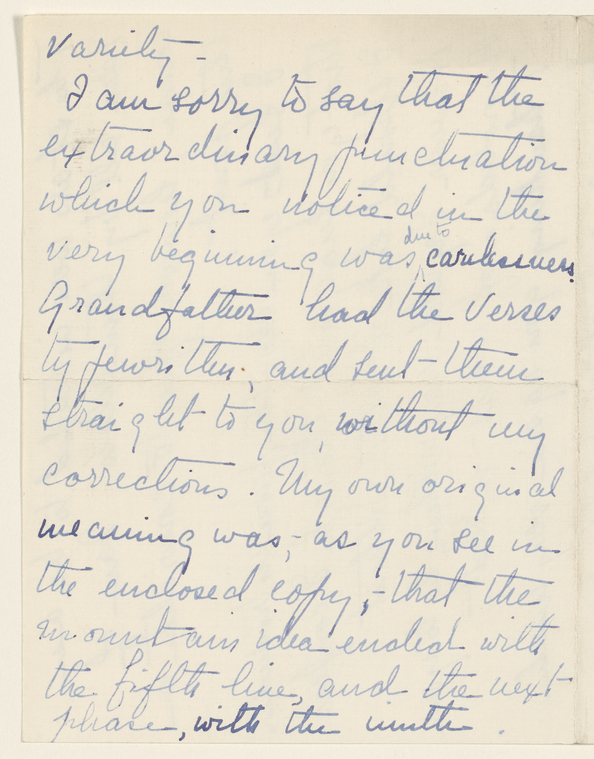 variety-
I am sorry to say that the
extraordinary punctuation
which you noticed in the
very beginning was due to carelessness.
Grandfather had the verses
typewritten, and sent them
straight to you, without my
corrections. My own original
meaning was,- as you see in
the enclosed copy,- that the
mountain idea ended with
the fifth line, and the next
phase, with the ninth.